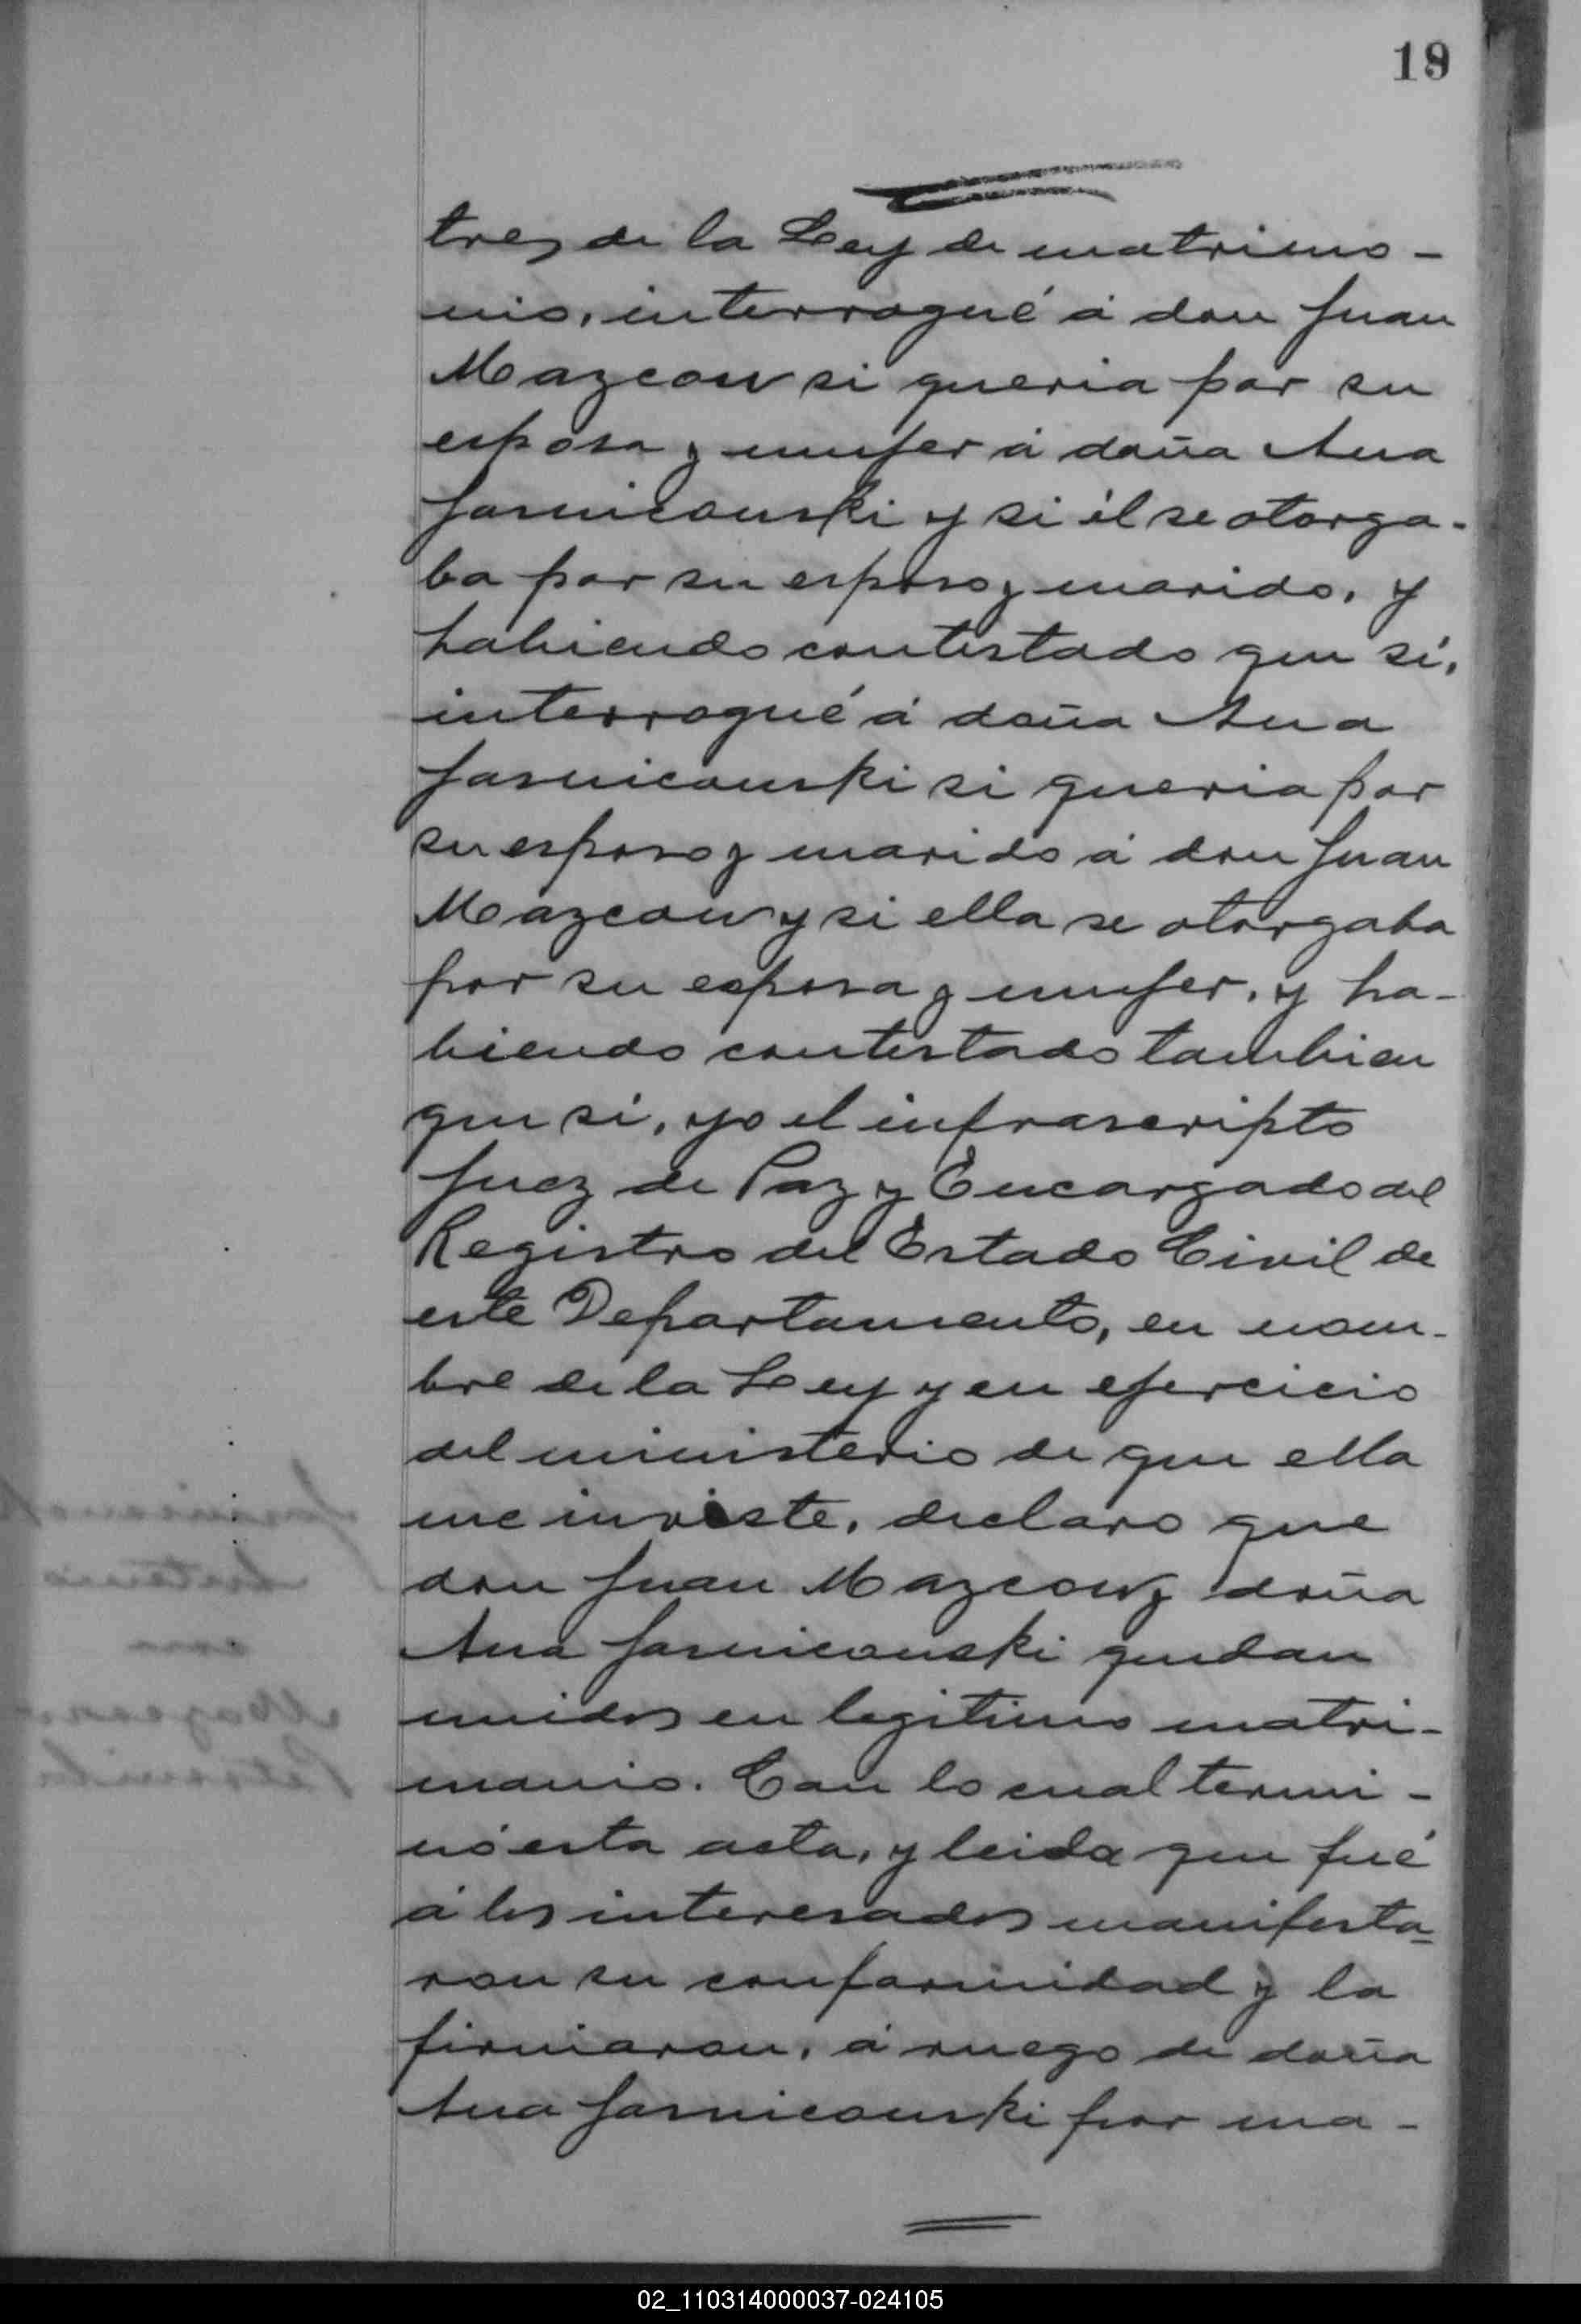 19
tres de la Ley de matrimo-
nio, interrogué á don Juan
Mazcow si queria por su
esposa y mujer á doña Ana
Jasnicouski y si él se otorga-
ba por su esposo y marido, y
habiendo contestado que sí,
interrogué á doña Ana
Jasnicouski si queria por
su esposo y marido á don Juan
Mazcow y si ella se otorgaba
por su esposa y mujer, y ha-
biendo contestado tambien
que sí, yo el infrascripto
Juez de Paz y Encargado del
Registro del Estado Civil de
este Departamento, en nom-
bre de la Ley y en ejercicio
del ministerio de que ella
me inviste, declaro que
don Juan Mazcow y doña
Ana Jasnicouski quedan
unidos en legitimo matri-
monio. Con lo cual termi-
nó esta acta, y leida que fué
á los interesados manifesta-
ron su conformidad y la
firmaron, á ruego de doña
Ana Jasnicouski por ma-
02_110314000037-024105